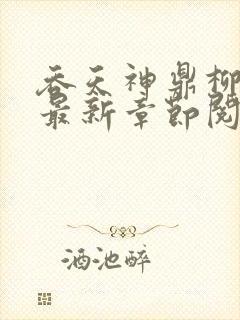 吞天神鼎柳
最新章节阅
酒池醉